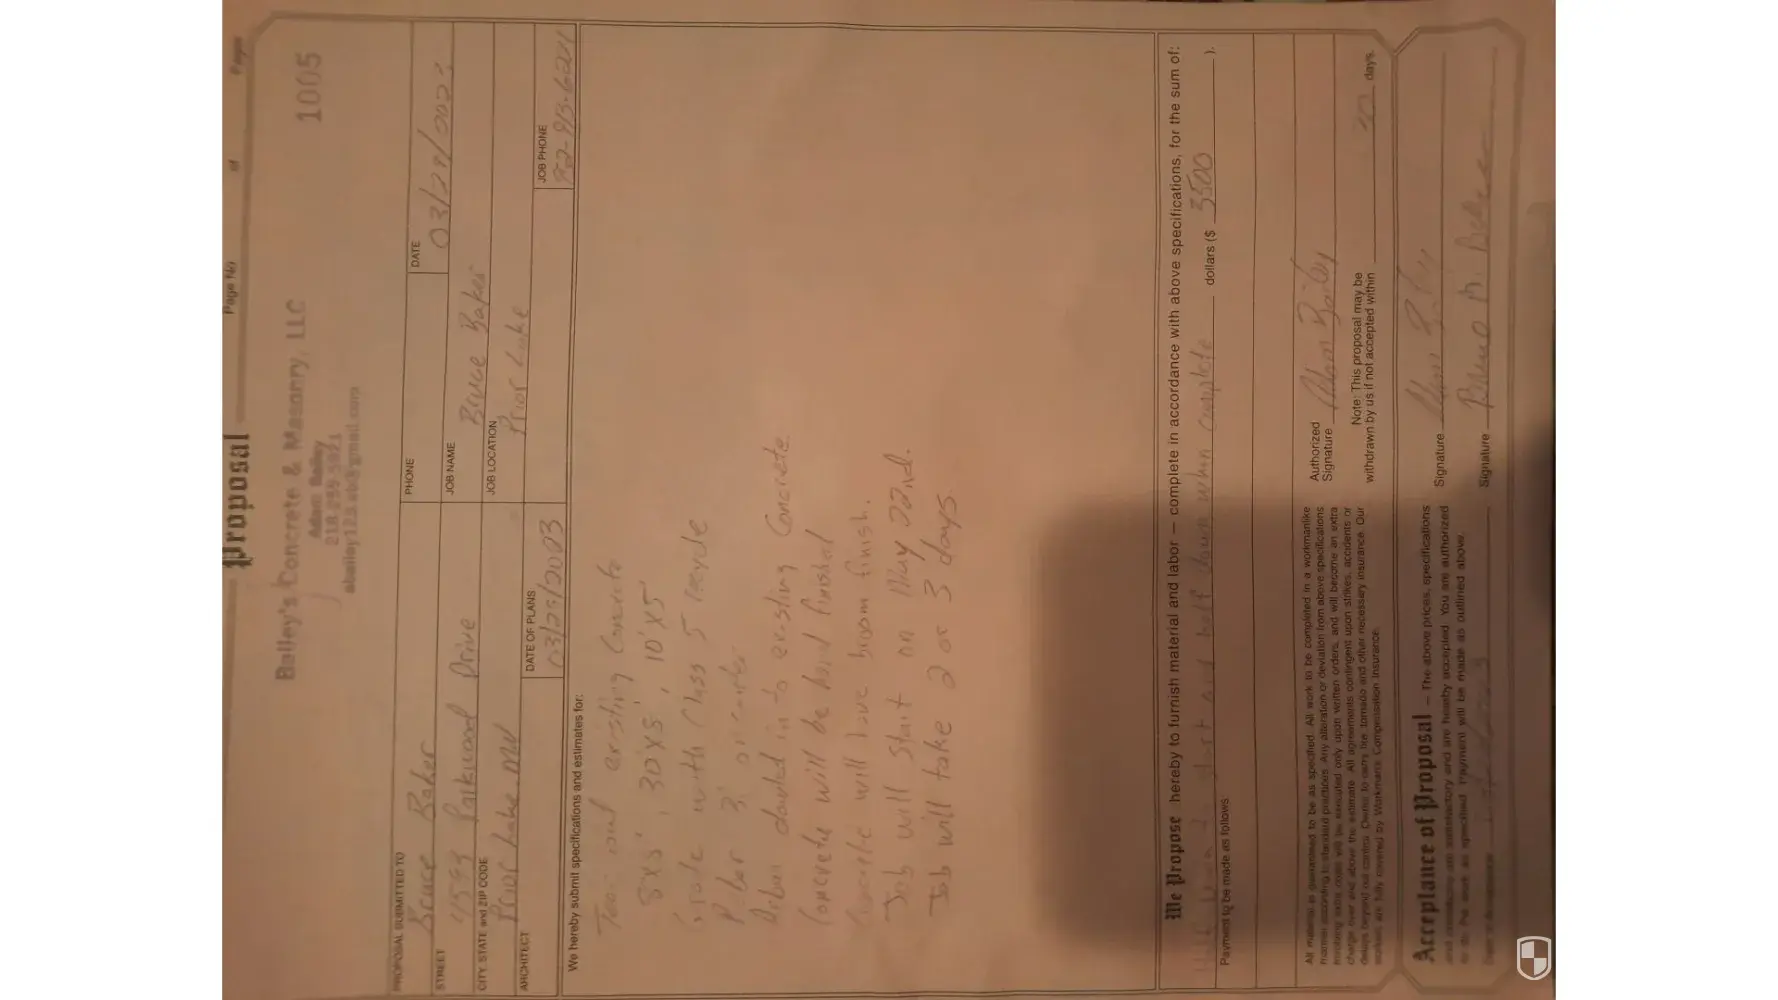 Page No of Pages
Proposal
Bailey's Concrete & Masonry, LLC
Adam Bailey
218 255
abailey123.ab@gmail.com
1005
PROPOSAL SUBMITTED TO
Bruce Baker
PHONE
DATE
03/29/
STREET
4599 Parkwood Drive
JOB NAME
Bruce Baker
CITY, STATE and ZIP CODE
Prior Lake, MN
JOB LOCATION
Prior Lake
ARCHITECT
DATE OF PLANS
JOB PHONE
We hereby submit specifications and estimates for:
Tear out existing Concrete
8'x5', 30'x5', 10'x5'
Grade with Class 5 recycle
Rebar 3' on center
Rebar doweled in to existing Concrete
Concrete will be hand finished
Concrete will have broom finish.
Job will start on May 22nd.
Job will take 2 or 3 days.
We Propose hereby to furnish material and labor — complete in accordance with above specifications, for the sum of:
Half down to start and half down when complete dollars ($ 3500 ).
Payment to be made as follows
All material is guaranteed to be as specified. All work to be completed in a workmanlike
manner according to standard practices. Any alteration or deviation from above specifications
involving extra costs will be executed only upon written orders, and will become an extra
charge over and above the estimate. All agreements contingent upon strikes, accidents or
delays beyond our control. Owner to carry fire, tornado and other necessary insurance. Our
workers are fully covered by Workman's Compensation Insurance.
Authorized
Signature Adam Bailey
Note: This proposal may be
withdrawn by us if not accepted within 30 days.
Acceptance of Proposal — The above prices, specifications
and conditions are satisfactory and are hereby accepted. You are authorized
to do the work as specified. Payment will be made as outlined above.
Date of Acceptance
Signature Adam Bailey
Signature Bruce Baker